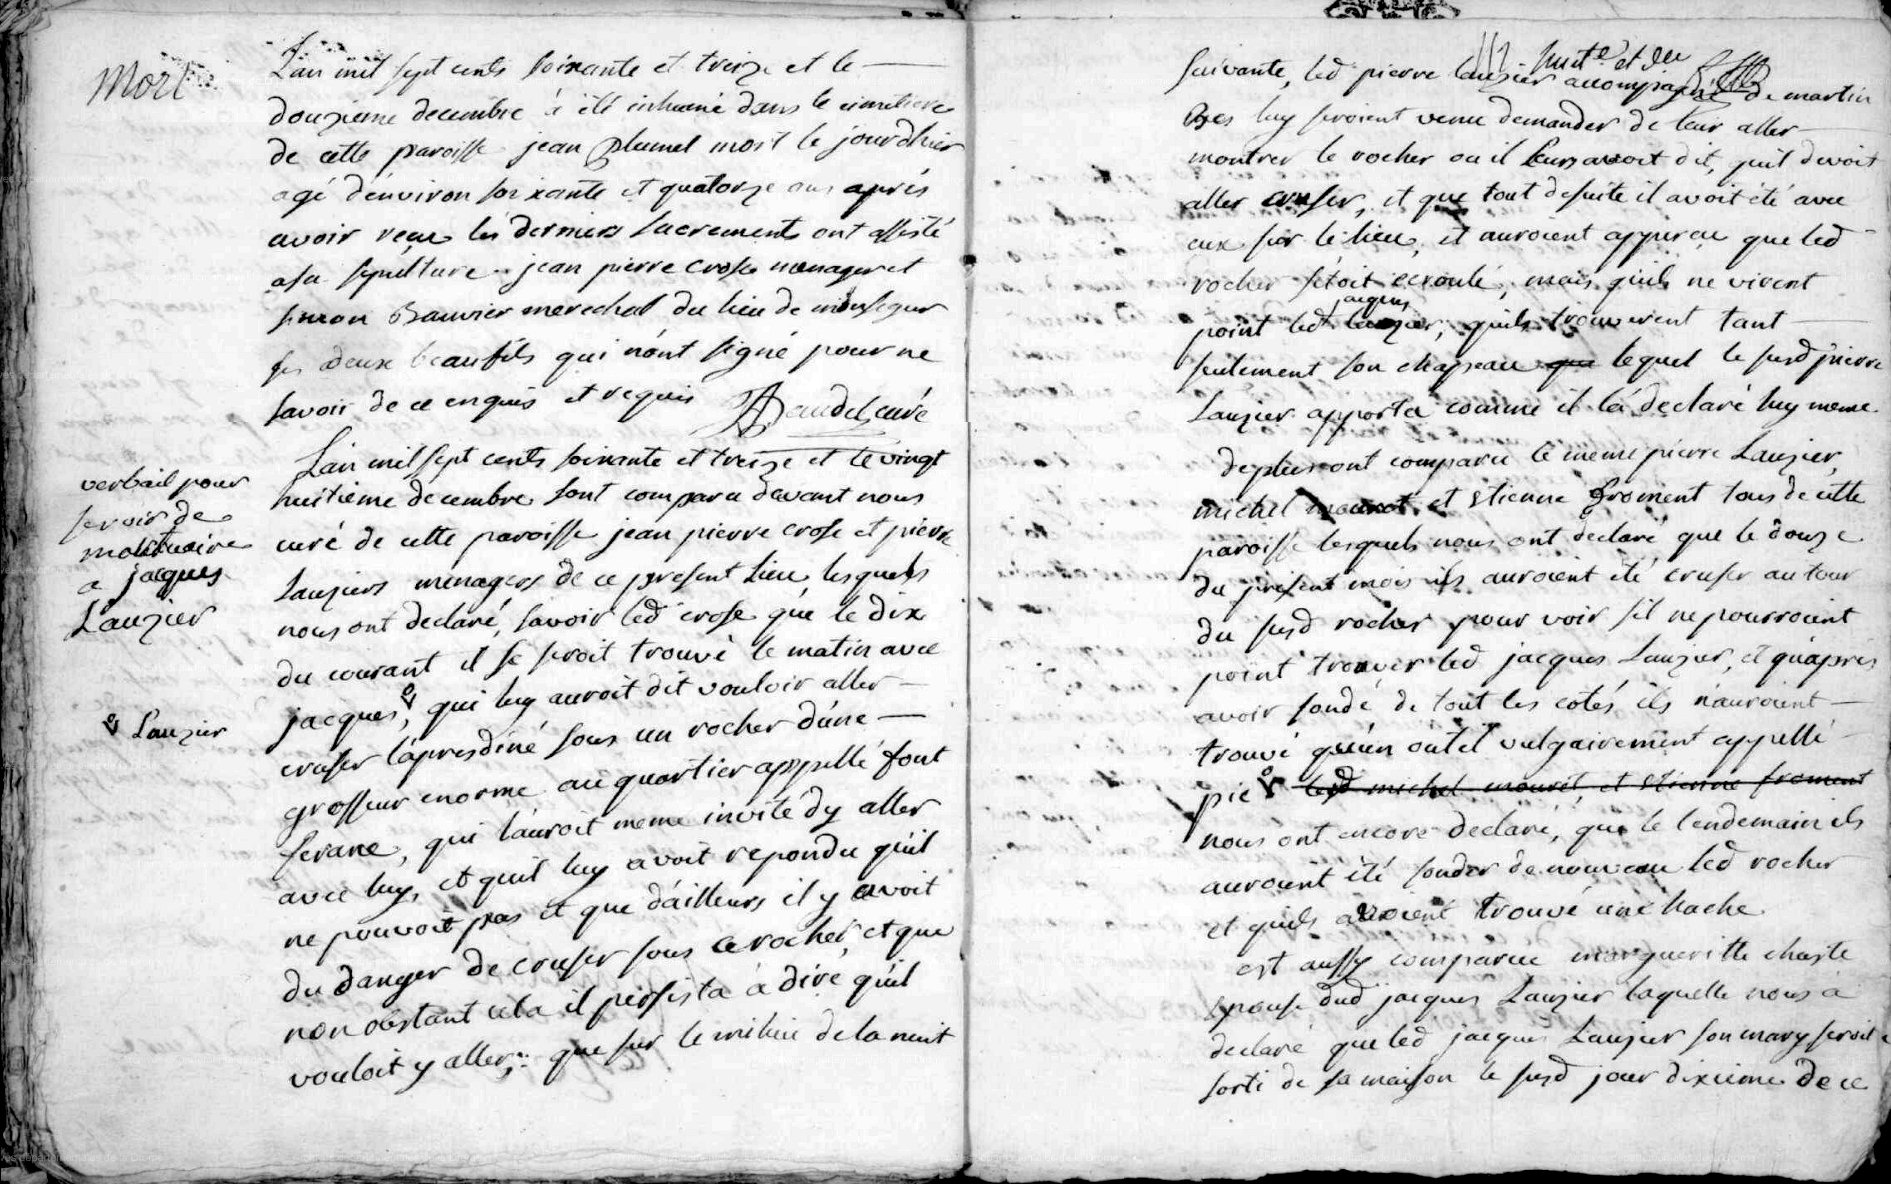 Mort
L'an mil sept cents soixante et treize et le
douzieme decembre à été inhumé dans le cimetiere
de cette paroisse jean plumel mort le jourdhier
agé dénviron soixante et quatorze ans aprés
avoir reçu les derniers sacrements ont assisté
a sa sepulture jean pierre crose menager et
simon Bauvier marechal du lieu de monsegur
ses deux beaufils qui n'ont signé pour ne
savoir de ce enquis et requis curé
verbail pour
servir de
mortuaire
a jacques
Lauzier
L'an mil sept cents soixante et treize et le vingt
huitième decembre sont comparu devant nous
curé de cette paroisse jean pierre crose et pierre
Lauziers menagers de ce present Lieu lesquels
nous ont declaré, savoir led crose que le dix
du courant il se seroit trouvé le matin avec
jacques, qui luy auroit dit vouloir aller
Lauzier
creuser l'apresdiné sous un rocher dúne
grosseur enorme au quartier appellé font
serane, qui láuroit meme invité dy aller
avec luy, et quil luy avoit repondu quil
ne pouvoit pas et que dáilleurs il y avoit
du danger de creuser sous ce rocher, et que
non obstant cela il persista à dire quil
vouloit y aller; que sur le milieu de la nuit
suivante, led pierre lauzier accompagné de martin
luy seroient venu demander de leur aller
montrer le rocher ou il leurs avoit dit, quil devoit
aller creuser, et que tout desuite il avoit été avec
eux sur le lieu, et auroient apperçu que led
rocher sétoit ecroulé, mais quils ne virent
point led jacques lauzier, quils trouverent tant
seulement son chapeau que lequel le susd pierre
Lauzier apporta comme il lá declaré luy meme
deplus ont comparu le meme pierre Lauzier,
michel mouret et etienne froment tous de cette
paroisse lesquels nous ont declaré que le douze
du présent mois ils auroient été creuser autour
du susd rocher pour voir sil ne pourroient
point trouver led jacques Lauzier, et quápres
avoir sondé de tout les cotés ils náuroient
trouvé quún outil vulgairement appellé
pic led michel mouret, et etienne froment
nous ont encore declaré, que le lendemain ils
auroient été sonder de nouveau led rocher
et quils auroient trouvé une hache
est aussy comparue margueritte chaste
epouse dud jacques Lauzier laquelle nous a
declaré que led jacques Lauzier son mary seroit
sorti de sa maison le susd jour dixieme de ce